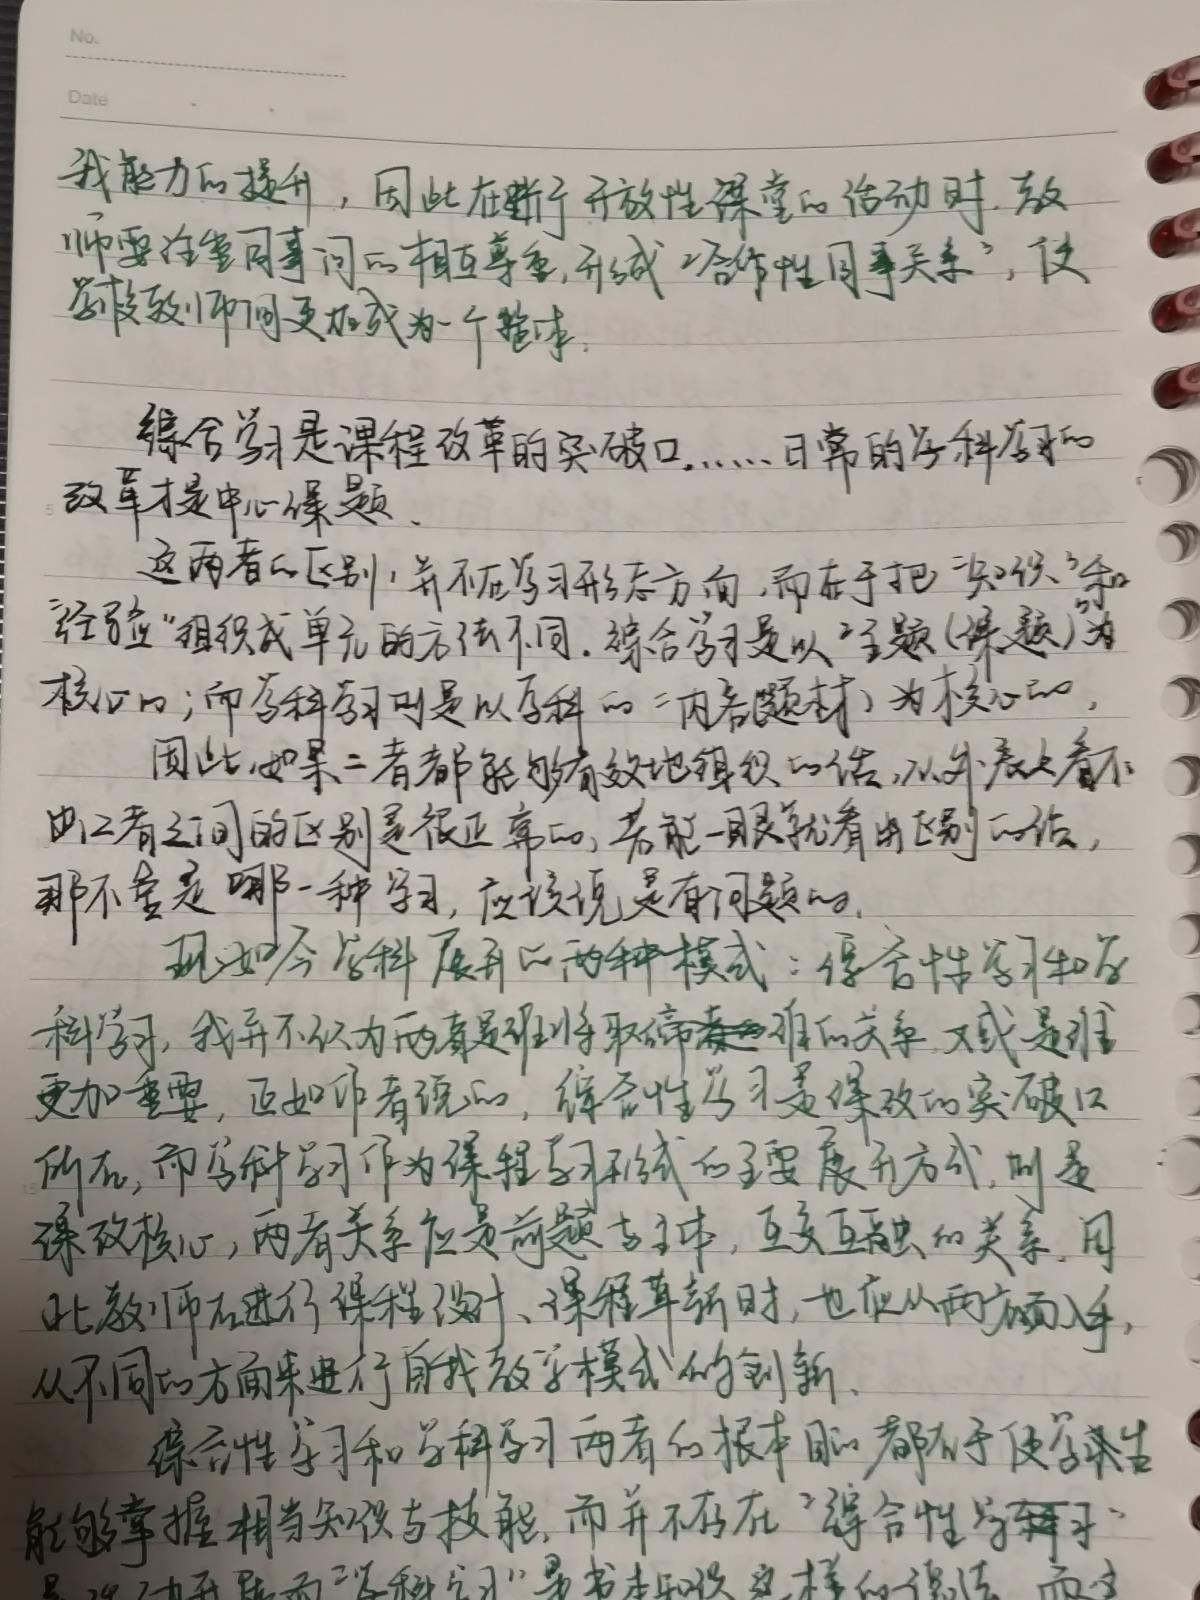 No.
Date
我能力的提升，因此在进行开放性课堂的活动时，教
师要注重同事间的相互尊重，形成“合作性同事关系”，使
学校教师间更加成为一个整体。
综合学习是课程改革的突破口……日常的学科学习的
改革才是中心课题。
这两者的区别，并不在学习形态方面，而在于把“知识”和
“经验”组织成单元的方法不同。综合学习是以“主题（课题）”为
核心的；而学科学习则是以学科的“内容（题材）”为核心的。
因此，如果二者都能够有效地组织的话，从外表上看不
出二者之间的区别是很正常的，若能一眼就看出区别的话，
那不管是哪一种学习，应该说是有问题的。
现如今学科展开的两种模式：综合性学习和学
科学习，我并不认为两者是谁将取缔谁的关系，又或是谁
更加重要，正如作者说的，综合性学习是课改的突破口
所在，而学科学习作为课程学习形式的主要展开方式，则是
课改核心，两者关系应是前题与主体，互交互融的关系。因
此教师在进行课程设计、课程革新时，也应从两方面入手，
从不同的方面来进行自我教学模式的创新。
综合性学习和学科学习两者的根本目的都在于使学生
能够掌握相当知识与技能，而并不存在“综合性学习”
是活动开展而“学科学习”是书本知识这样的说法，而这